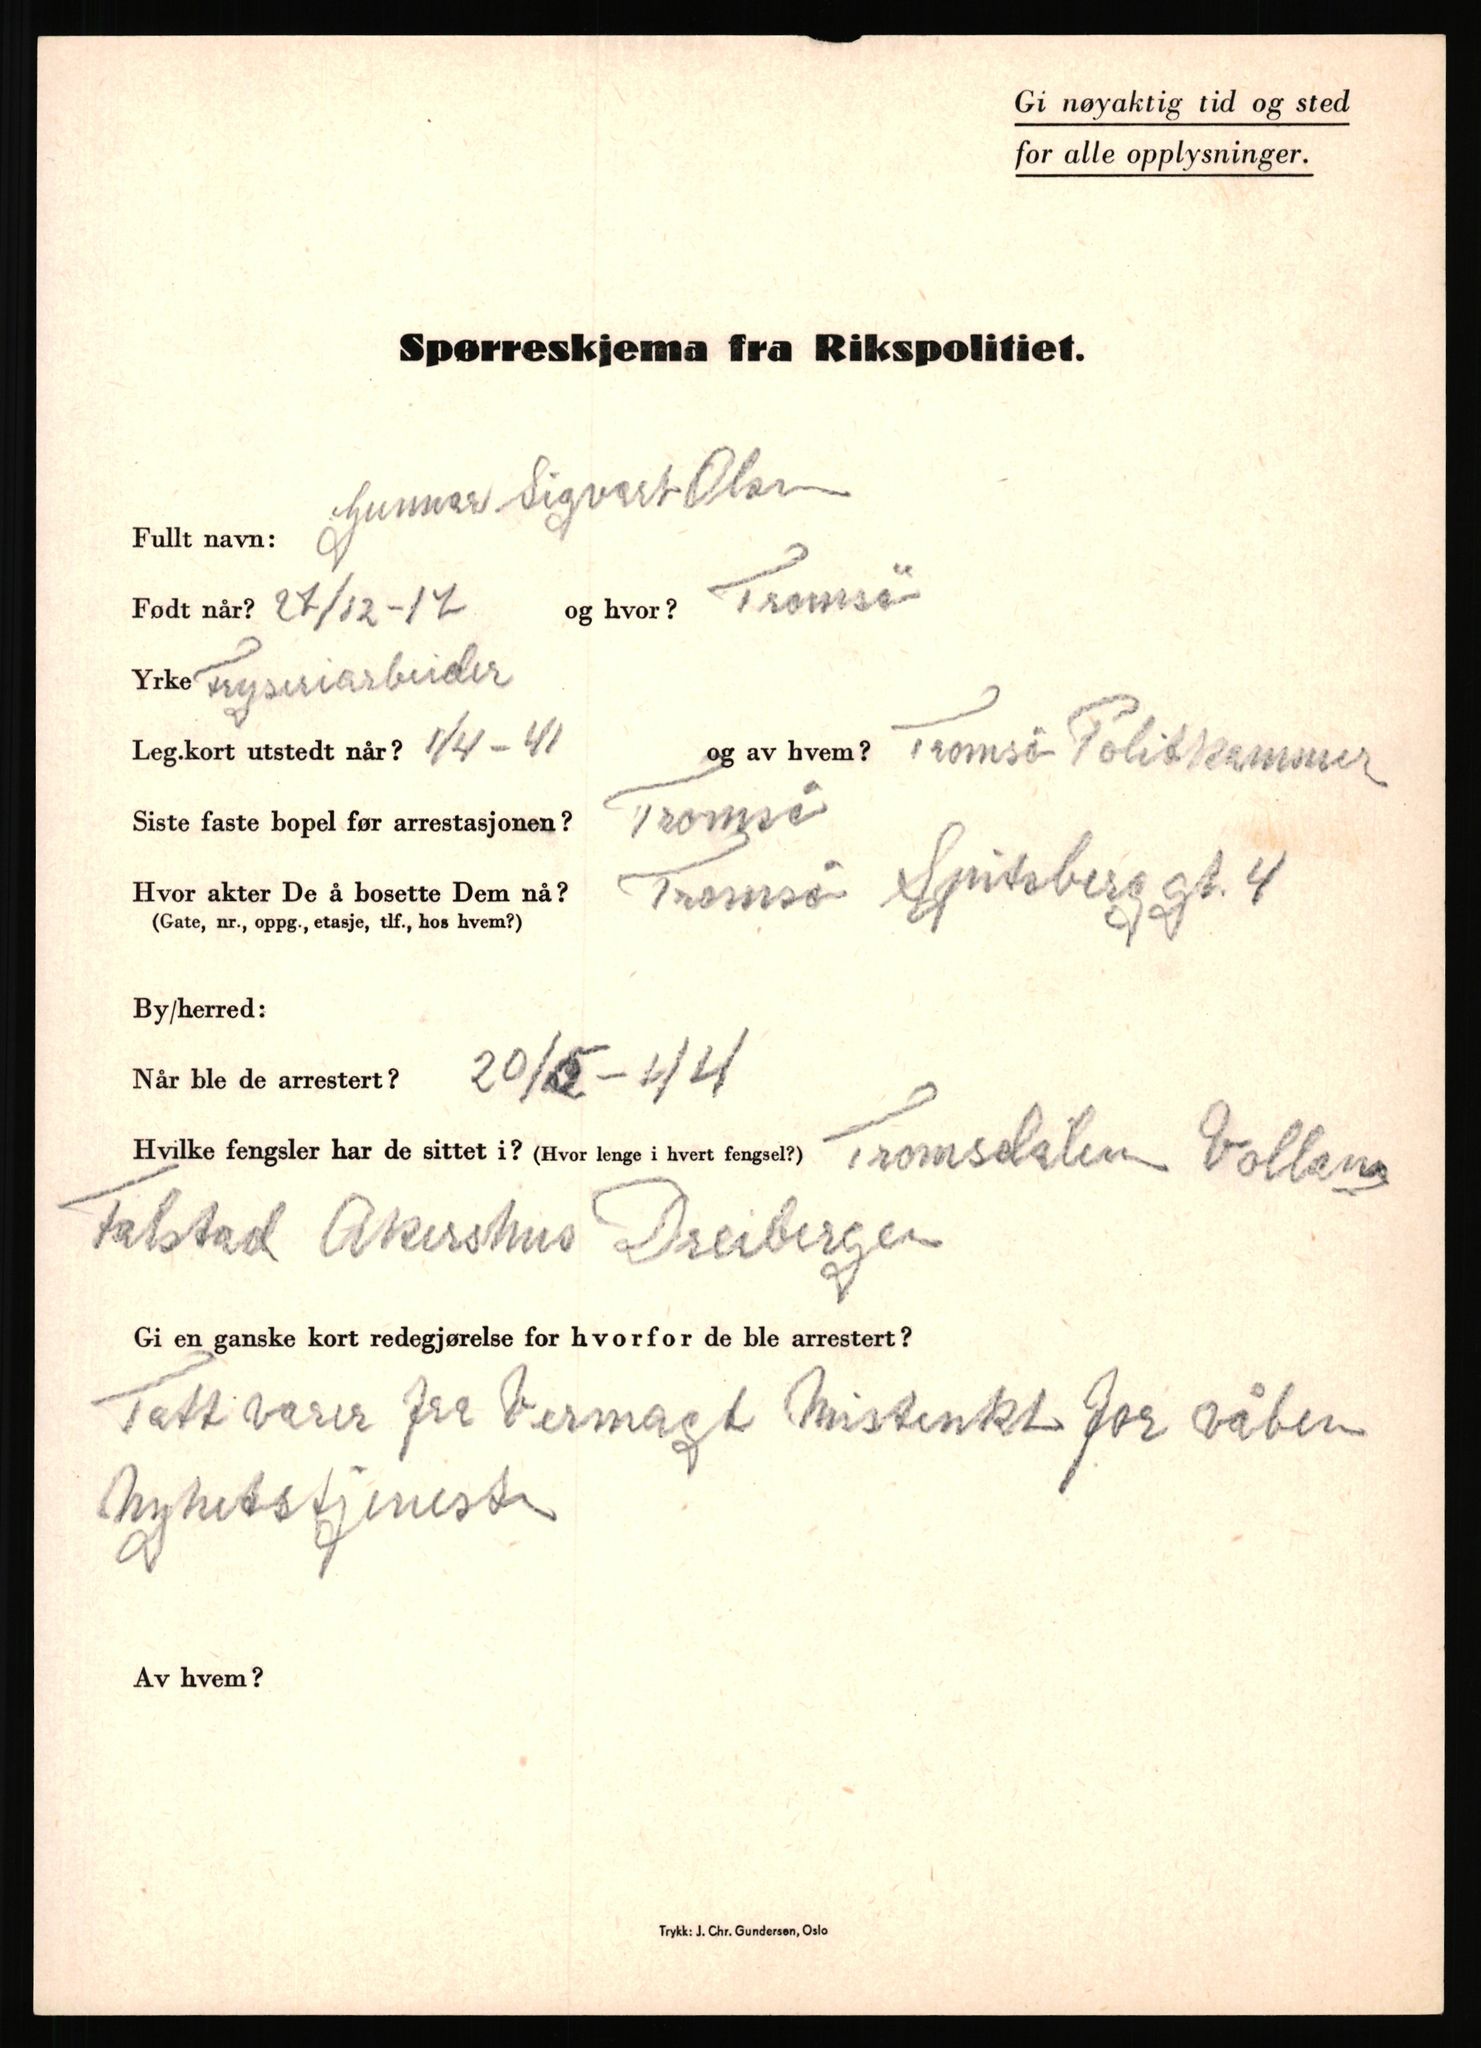 Gi nøyaktig tid og sted
for alle opplysninger.
Spørreskjema fra Rikspolitiet.
Fullt navn: Gunnar Sigvart Olsen
Født når? 27/12-17 og hvor? Tromsö
Yrke Fryseriarbeider
Leg.kort utstedt når? 1/4-41 og av hvem? Tromsö Politkammer
Siste faste bopel før arrestasjonen? Tromsö
Hvor akter De å bosette Dem nå? Tromsö Spitsberg gt. 4
(Gate, nr., oppg., etasje, tlf., hos hvem?)
By/herred:
Når ble de arrestert? 20/5-44
Hvilke fengsler har de sittet i? (Hvor lenge i hvert fengsel?) Tromsdalen Vollan
Falstad Akershus Dreibergen
Gi en ganske kort redegjørelse for hvorfor de ble arrestert?
Tatt varer fra Vermagt Mistenkt for våben
Nyhetstjeneste
Av hvem?
Trykk: J. Chr. Gundersen, Oslo